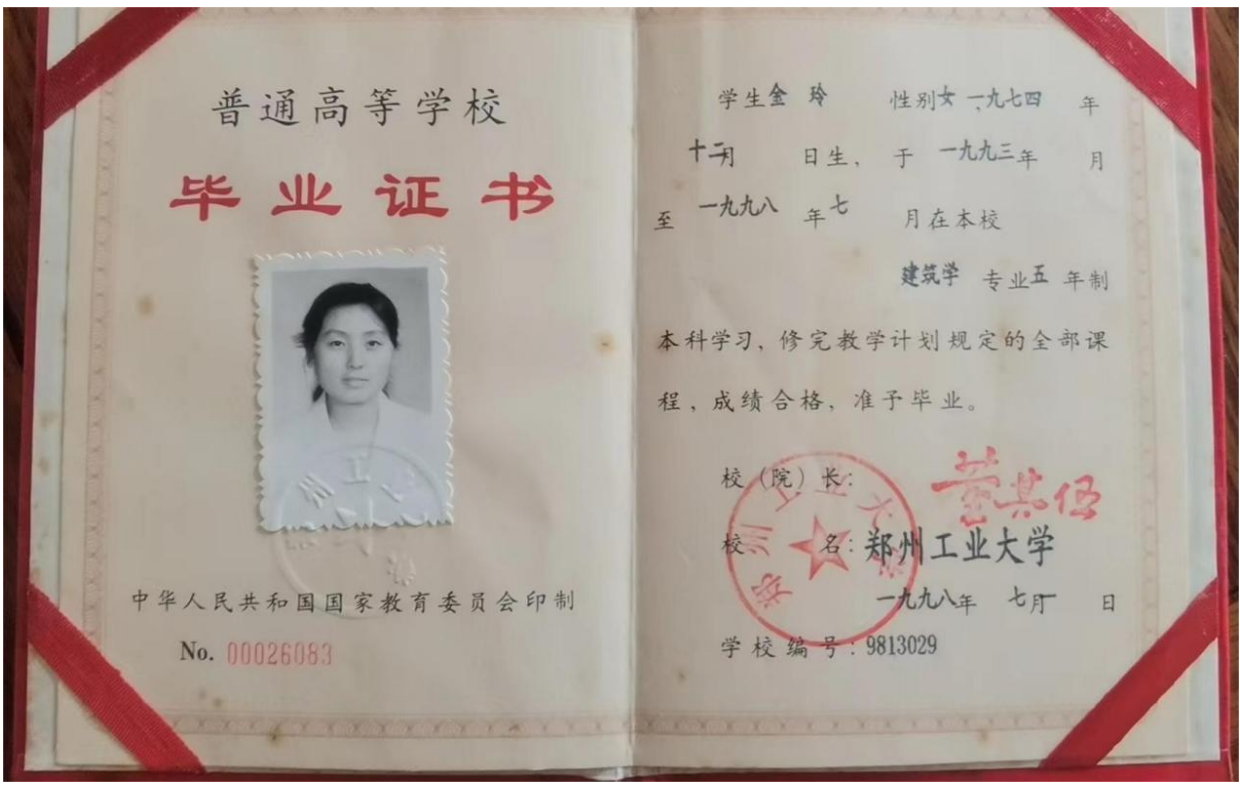 普通高等学校
毕业证书
中华人民共和国国家教育委员会印制
No. 00026083
学生金 玲 性别女 一九七四 年
十二月 日生, 于 一九九三年 月
至 一九九八 年七 月在本校
建筑学 专业五 年制
本科学习、修完教学计划规定的全部课
程,成绩合格,准予毕业。
校(院)长: 董其伍
校 名: 郑州工业大学
一九九八年 七月一 日
学校编号: 9813029
郑州工业大学